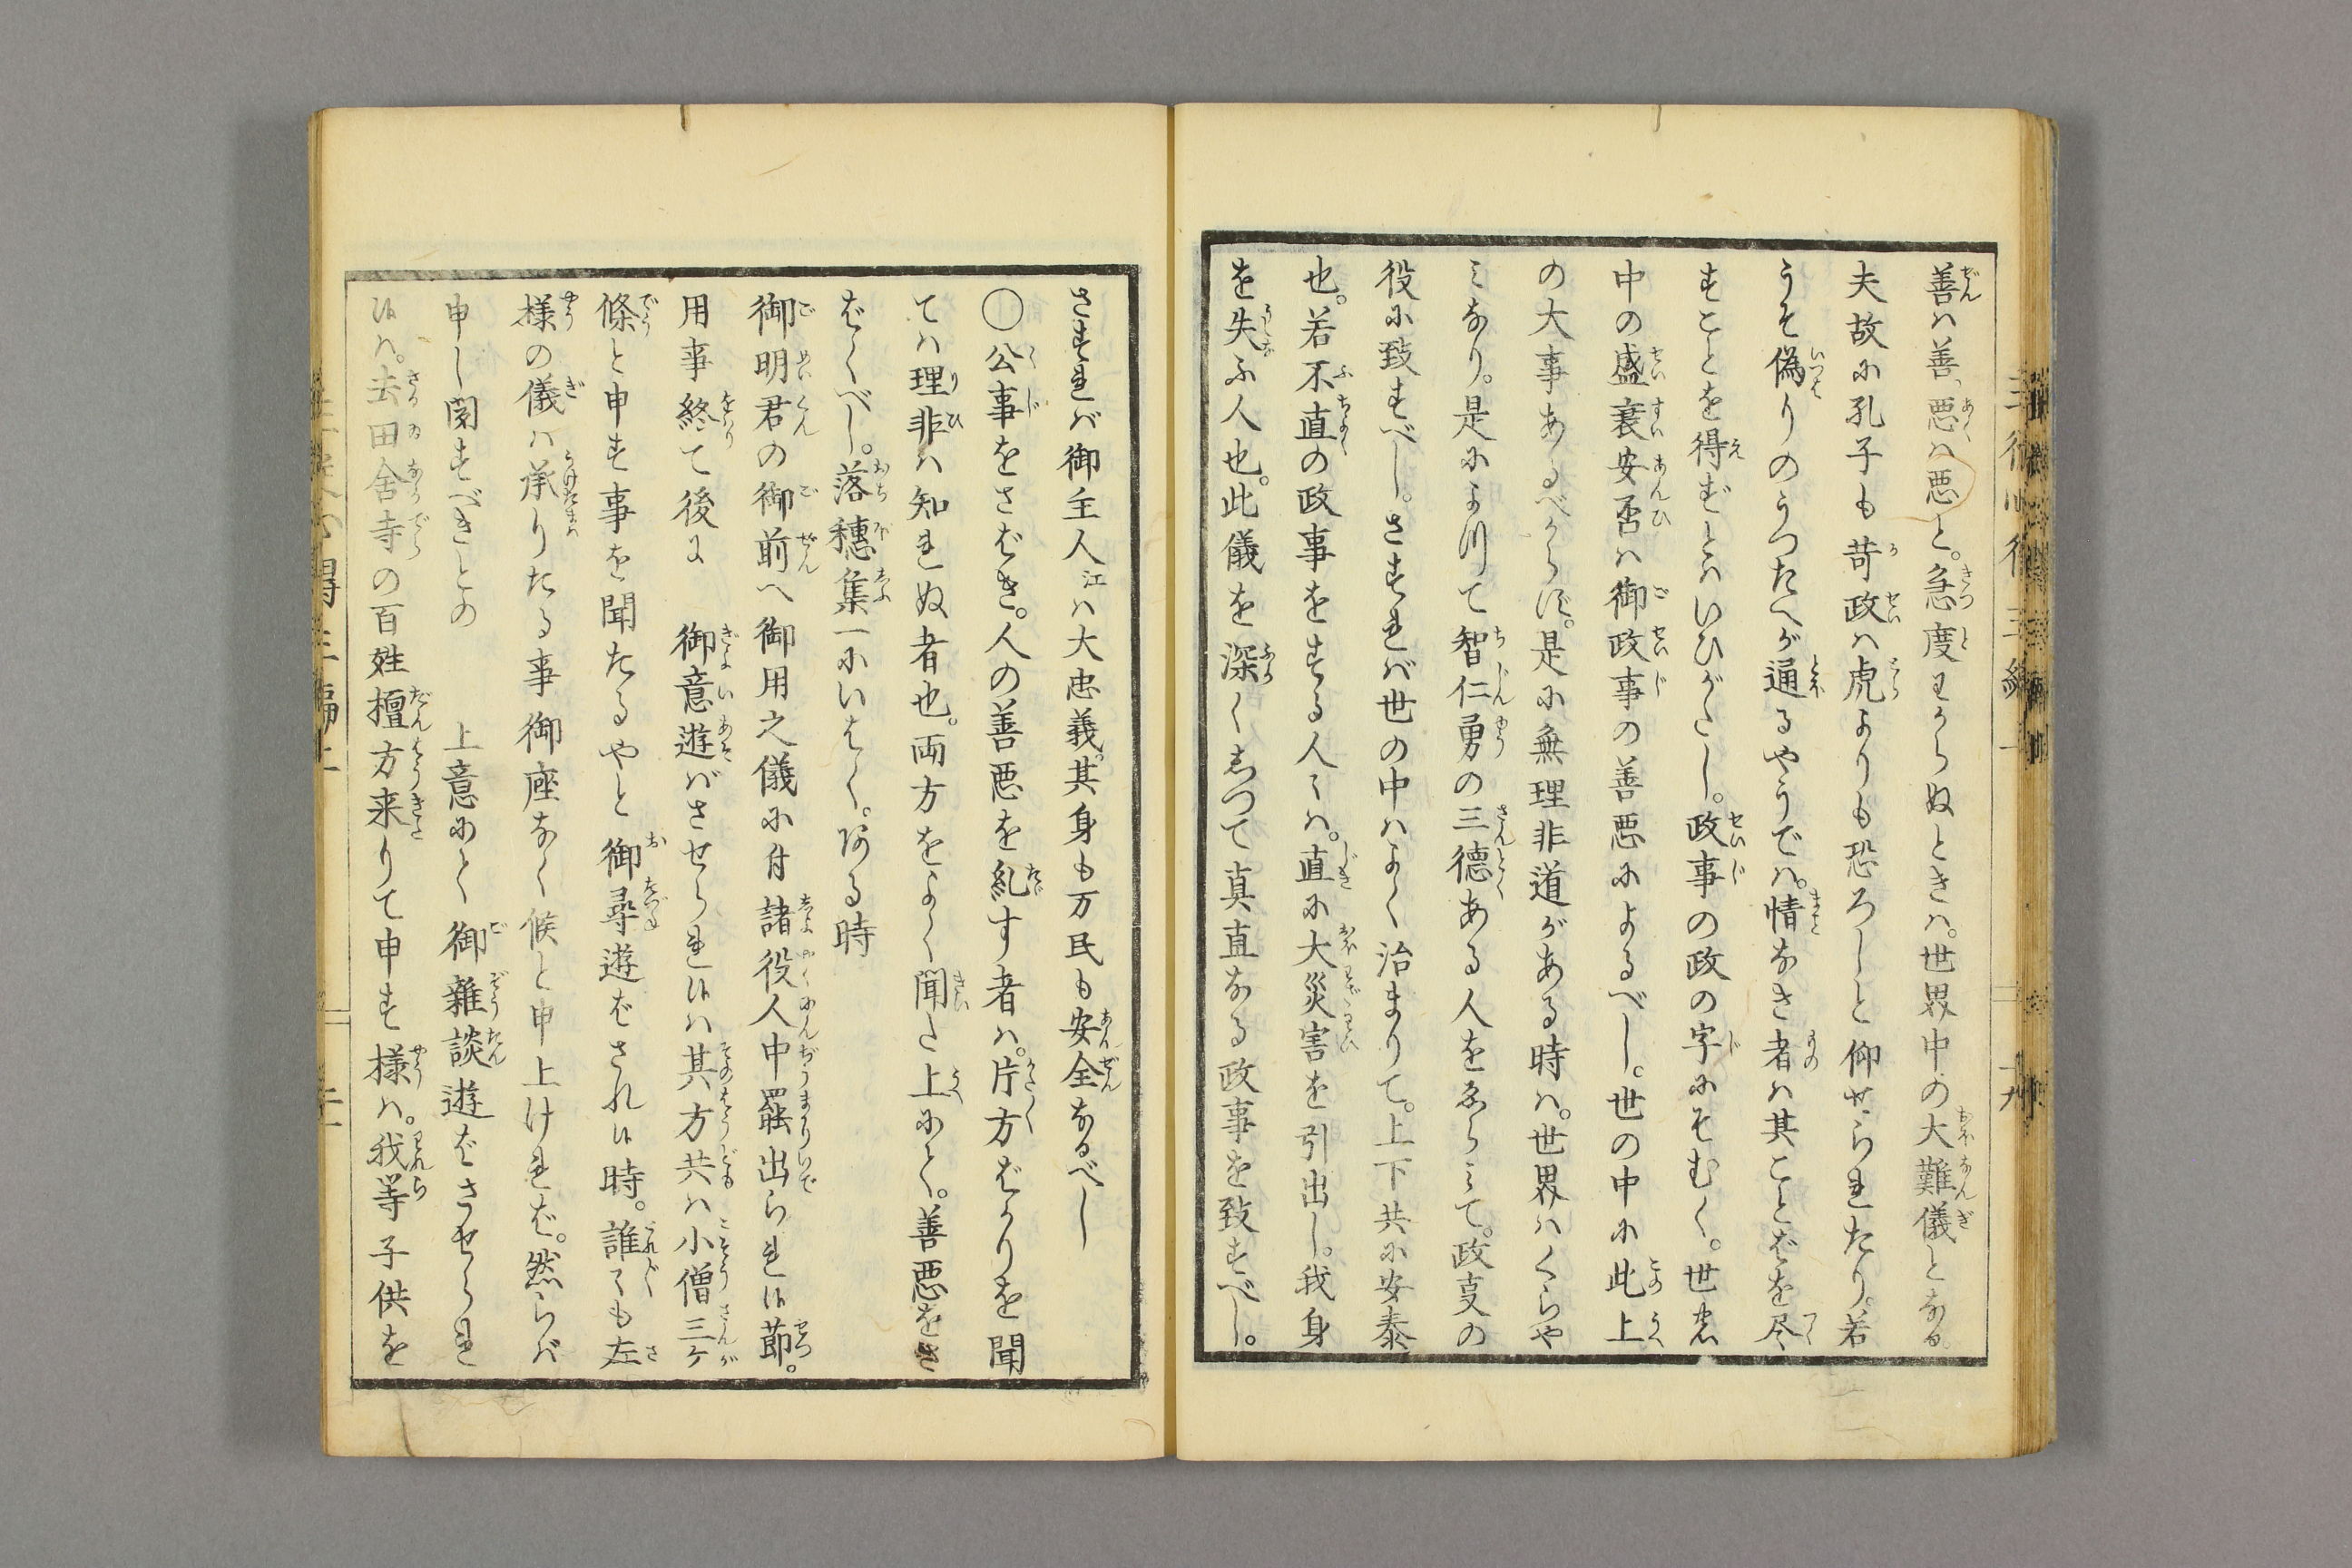 善ハ善、悪ハ悪と。急度わからぬときハ。世界中の大難儀となる。
夫故に孔子も苛政ハ虎よりも恐ろしと仰せられたり。若
うそ偽りのうつたへが通るやうでハ。情なき者ハ其ことばを尽
すことを得ずとハいひがたし。政事の政の字にそむく。世
中の盛衰安否ハ御政事の善悪によるべし。世の中に此上
の大事あるべからず。是に無理非道がある時ハ。世界ハくらや
ミなり。是によつて智仁勇の三徳ある人をゑらミて。政事の
役に致すべし。さすれバ世の中ハよく治まりて。上下共に安泰
也。若不直の政事をする人々ハ。直に大災害を引出し。我身
を失ふ人也。此儀を深くしつて真直なる政事を致すべし。
さすれバ御主人江ハ大忠義。其身も万民も安全なるべし
〇公事をさばき。人の善悪を糺す者ハ。片方ばかりを聞
てハ理非ハ知れぬ者也。両方をよく聞た上にて。善悪をさ
ばくべし。落穂集一にいはく。ある時
御明君の御前へ御用之儀に付諸役人中罷出られ候節。
用事終て後に 御意遊バさせられ候ハ其方共ハ小僧三ケ
條と申す事を聞たるやと御尋遊ばされ候時。誰々も左
様の儀ハ承りたる事御座なく候と申上けれバ。然らバ
申し聞すべきとの 上意にて御雑談遊ばさせられ
候ハ。去田舎寺の百姓檀方来りて申す様ハ。我等子供を